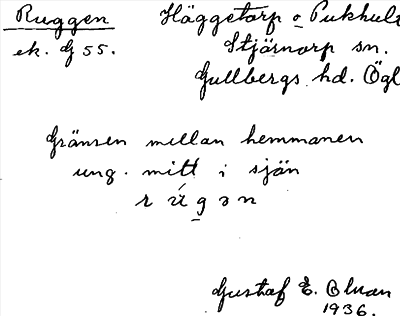 Ruggen Häggetorp o Pukhult
ek. G 55. Stjärnorp sn.
Gullbergs hd. Ögl
Gränsen mellan hemmanen
ung. mitt i sjön
r ú g ə n
Gustaf E.
1936.